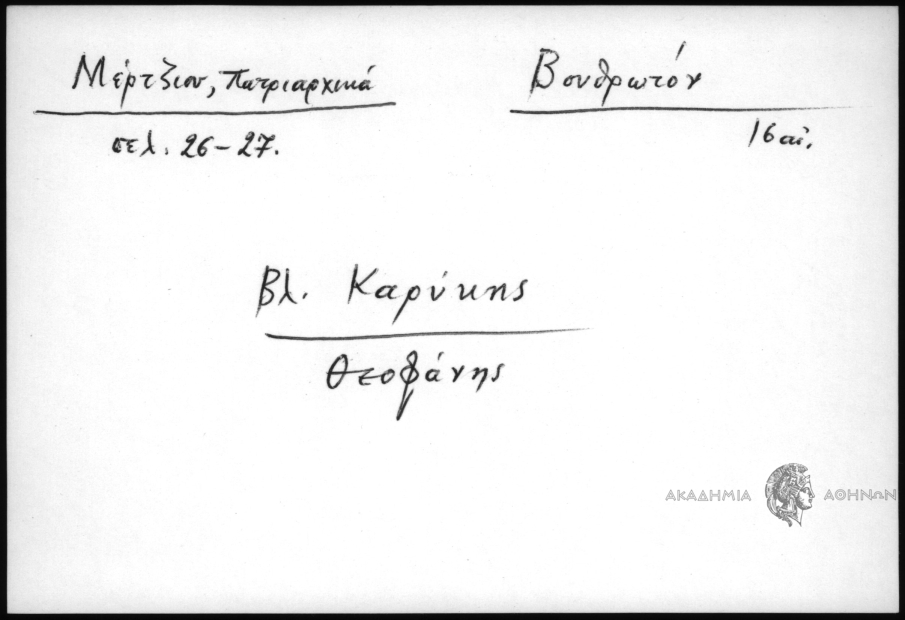 Μέρτζιου, Πατριαρχικά
σελ. 26-27.
Βουθρωτόν
16 αἰ.
Βλ. Καρύκης
Θεοφάνης
ΑΚΑΔΗΜΙΑ ΑΘΗΝΩΝ